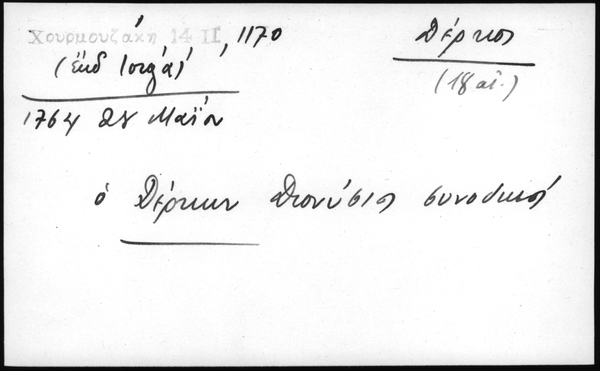 Χουρμουζάκη 14 II, 1170
Δέρκοι
(ἐκδ Ιόργα)
(18 αἰ.)
1764 28 Μαΐου
ὁ Δέρκων Διονύσιος συνοδικός